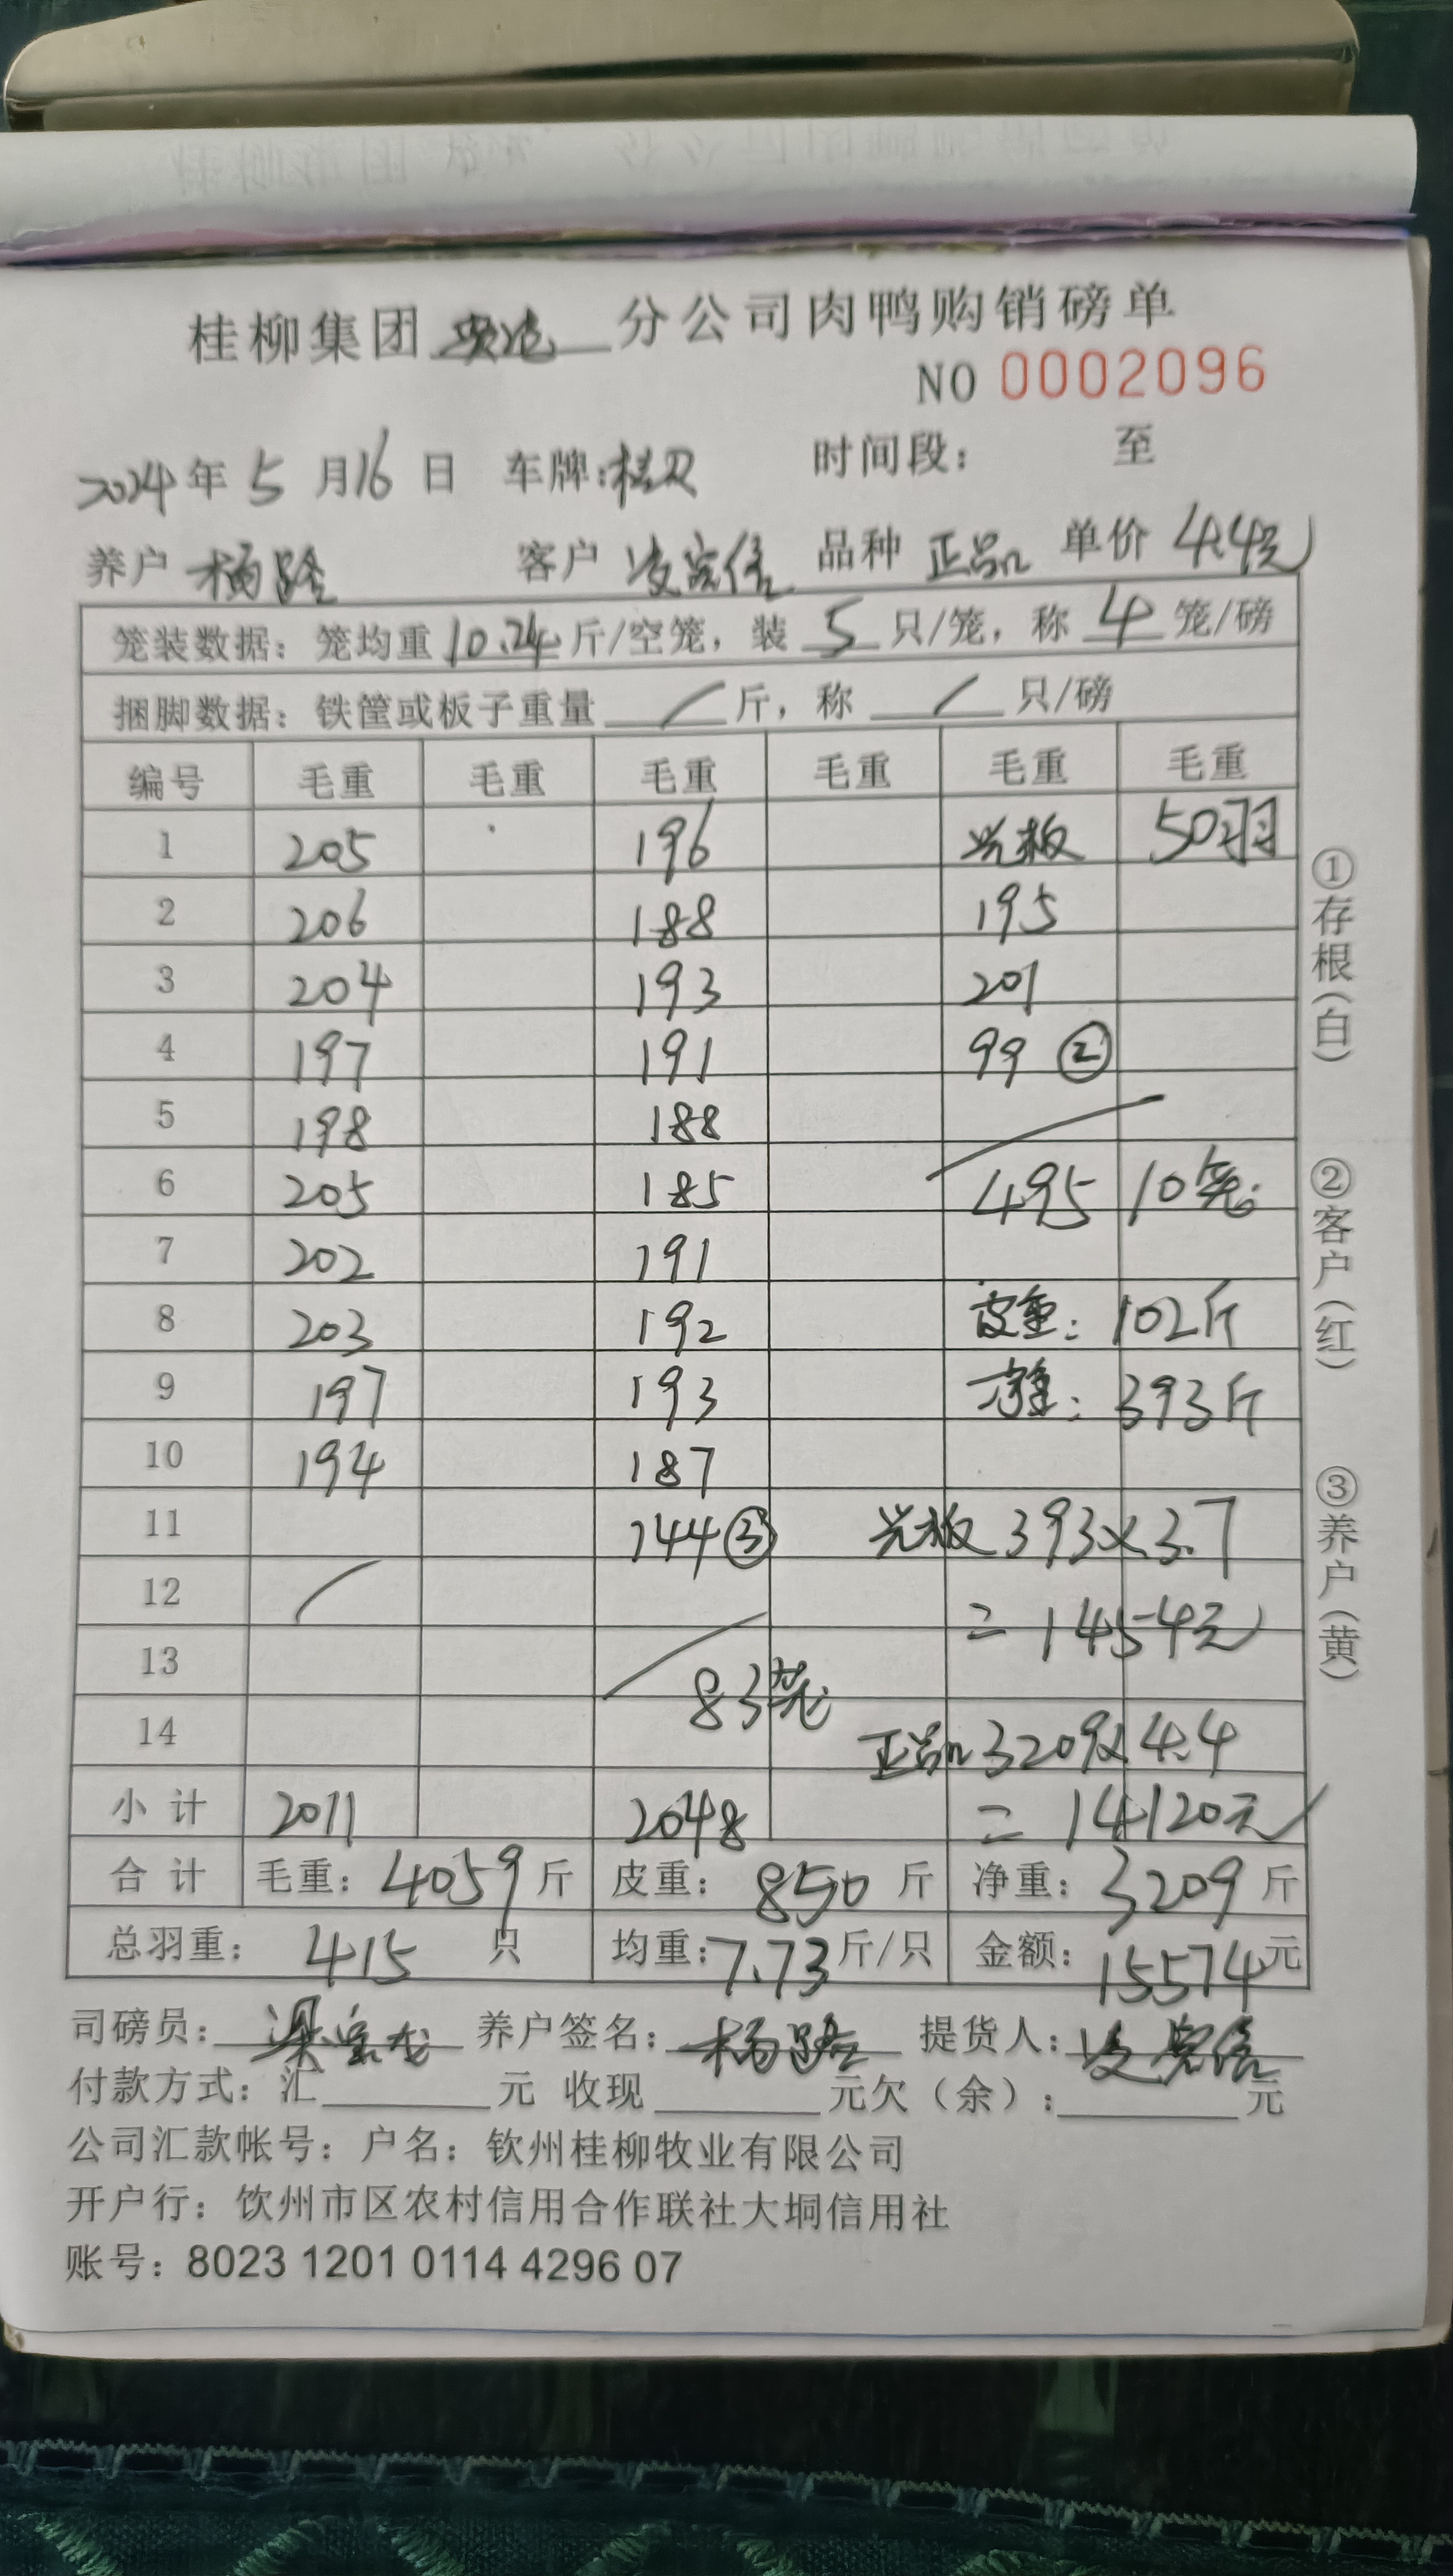 桂柳集团 分公司肉鸭购销磅单
NO 0002096
2024年5月16日 车牌: 时间段: 至
养户 杨 客户 凌宾信 品种 正品 单价 4.4元
笼装数据: 笼均重10.24斤/空笼, 装5只/笼, 称4笼/磅
捆脚数据: 铁筐或板子重量/斤, 称/只/磅
编号 毛重 毛重 毛重 毛重 毛重 毛重
1 205 196 光板 50羽
2 206 188 195
3 204 193 201
4 197 191 99 ②
5 198 188
6 205 185 495 10笼
7 202 191
8 203 192 皮重: 102斤
9 197 193 净重: 393斤
10 194 187
11 144 ③ 光板 393×3.7
12 = 1454元
13 83笼
14 正品 3209×4.4
小计 2011 2048 = 14120元
合计 毛重: 4059斤 皮重: 850斤 净重: 3209斤
总羽重: 415只 均重: 7.73斤/只 金额: 15574元
司磅员: 梁 养户签名: 杨 提货人: 凌宾信
付款方式: 汇 元 收现 元欠(余): 元
公司汇款帐号: 户名: 钦州桂柳牧业有限公司
开户行: 饮州市区农村信用合作联社大垌信用社
账号: 8023 1201 0114 4296 07
①存根(白)
②客户(红)
③养户(黄)